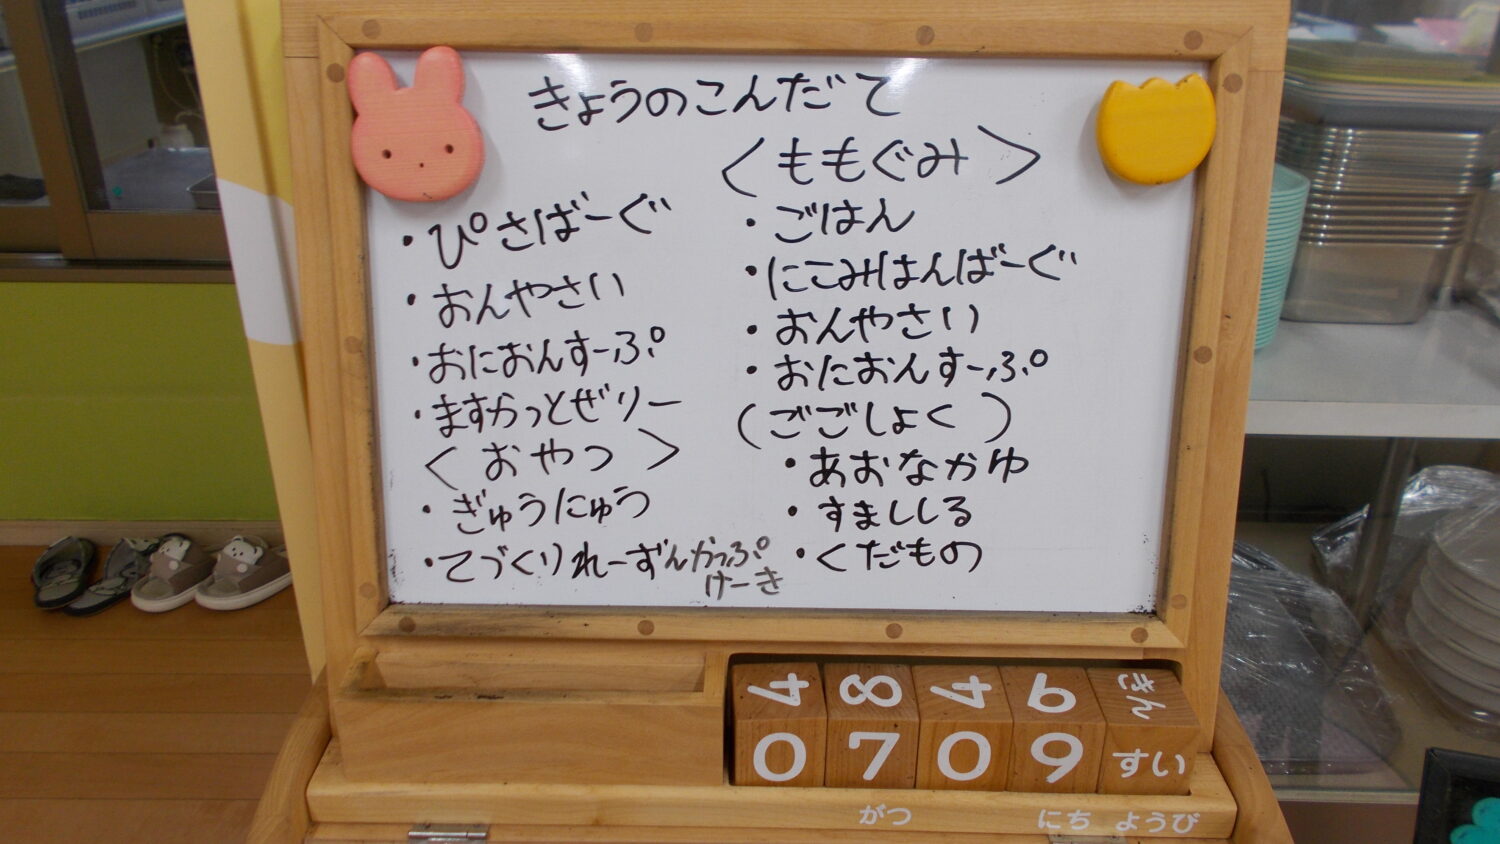 きょうのこんだて
・ぴざばーぐ
・おんやさい
・おにおんすーぷ
・ますかっとぜりー
＜おやつ＞
・ぎゅうにゅう
・てづくりれーずんかっぷけーき
＜ももぐみ＞
・ごはん
・にこみはんばーぐ
・おんやさい
・おにおんすーぷ
（ごごしょく）
・あおなかゆ
・すまししる
・くだもの
4 8 4 6 きん
0 7 0 9 すい
がつ にち ようび